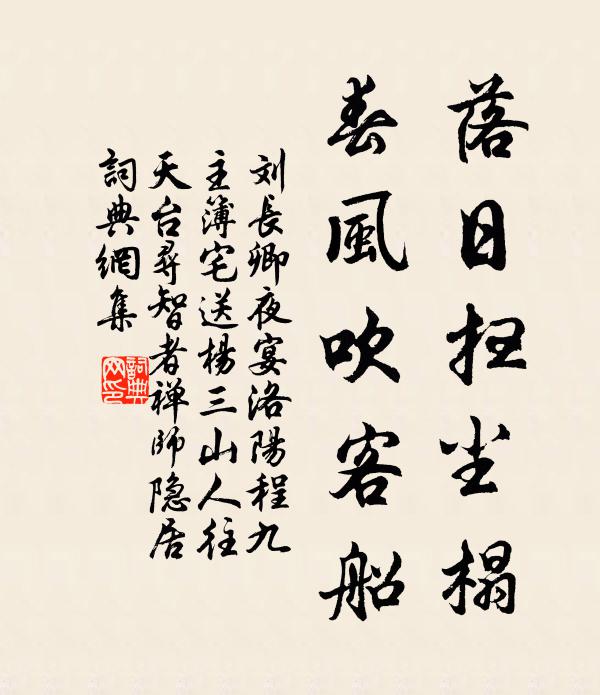 落日扫尘榻
春風吹客船
刘長卿夜宴洛陽程九
主簿宅送楊三山人往
天台尋智者禅師隐居
詞典網集
詞典
网印